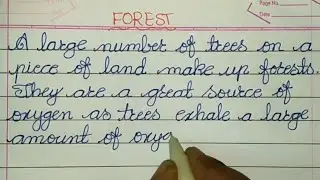 Page No.
Date
FOREST
A large number of trees on a
piece of land make up forests.
They are a great source of
oxygen as trees exhale a large
amount of oxyg